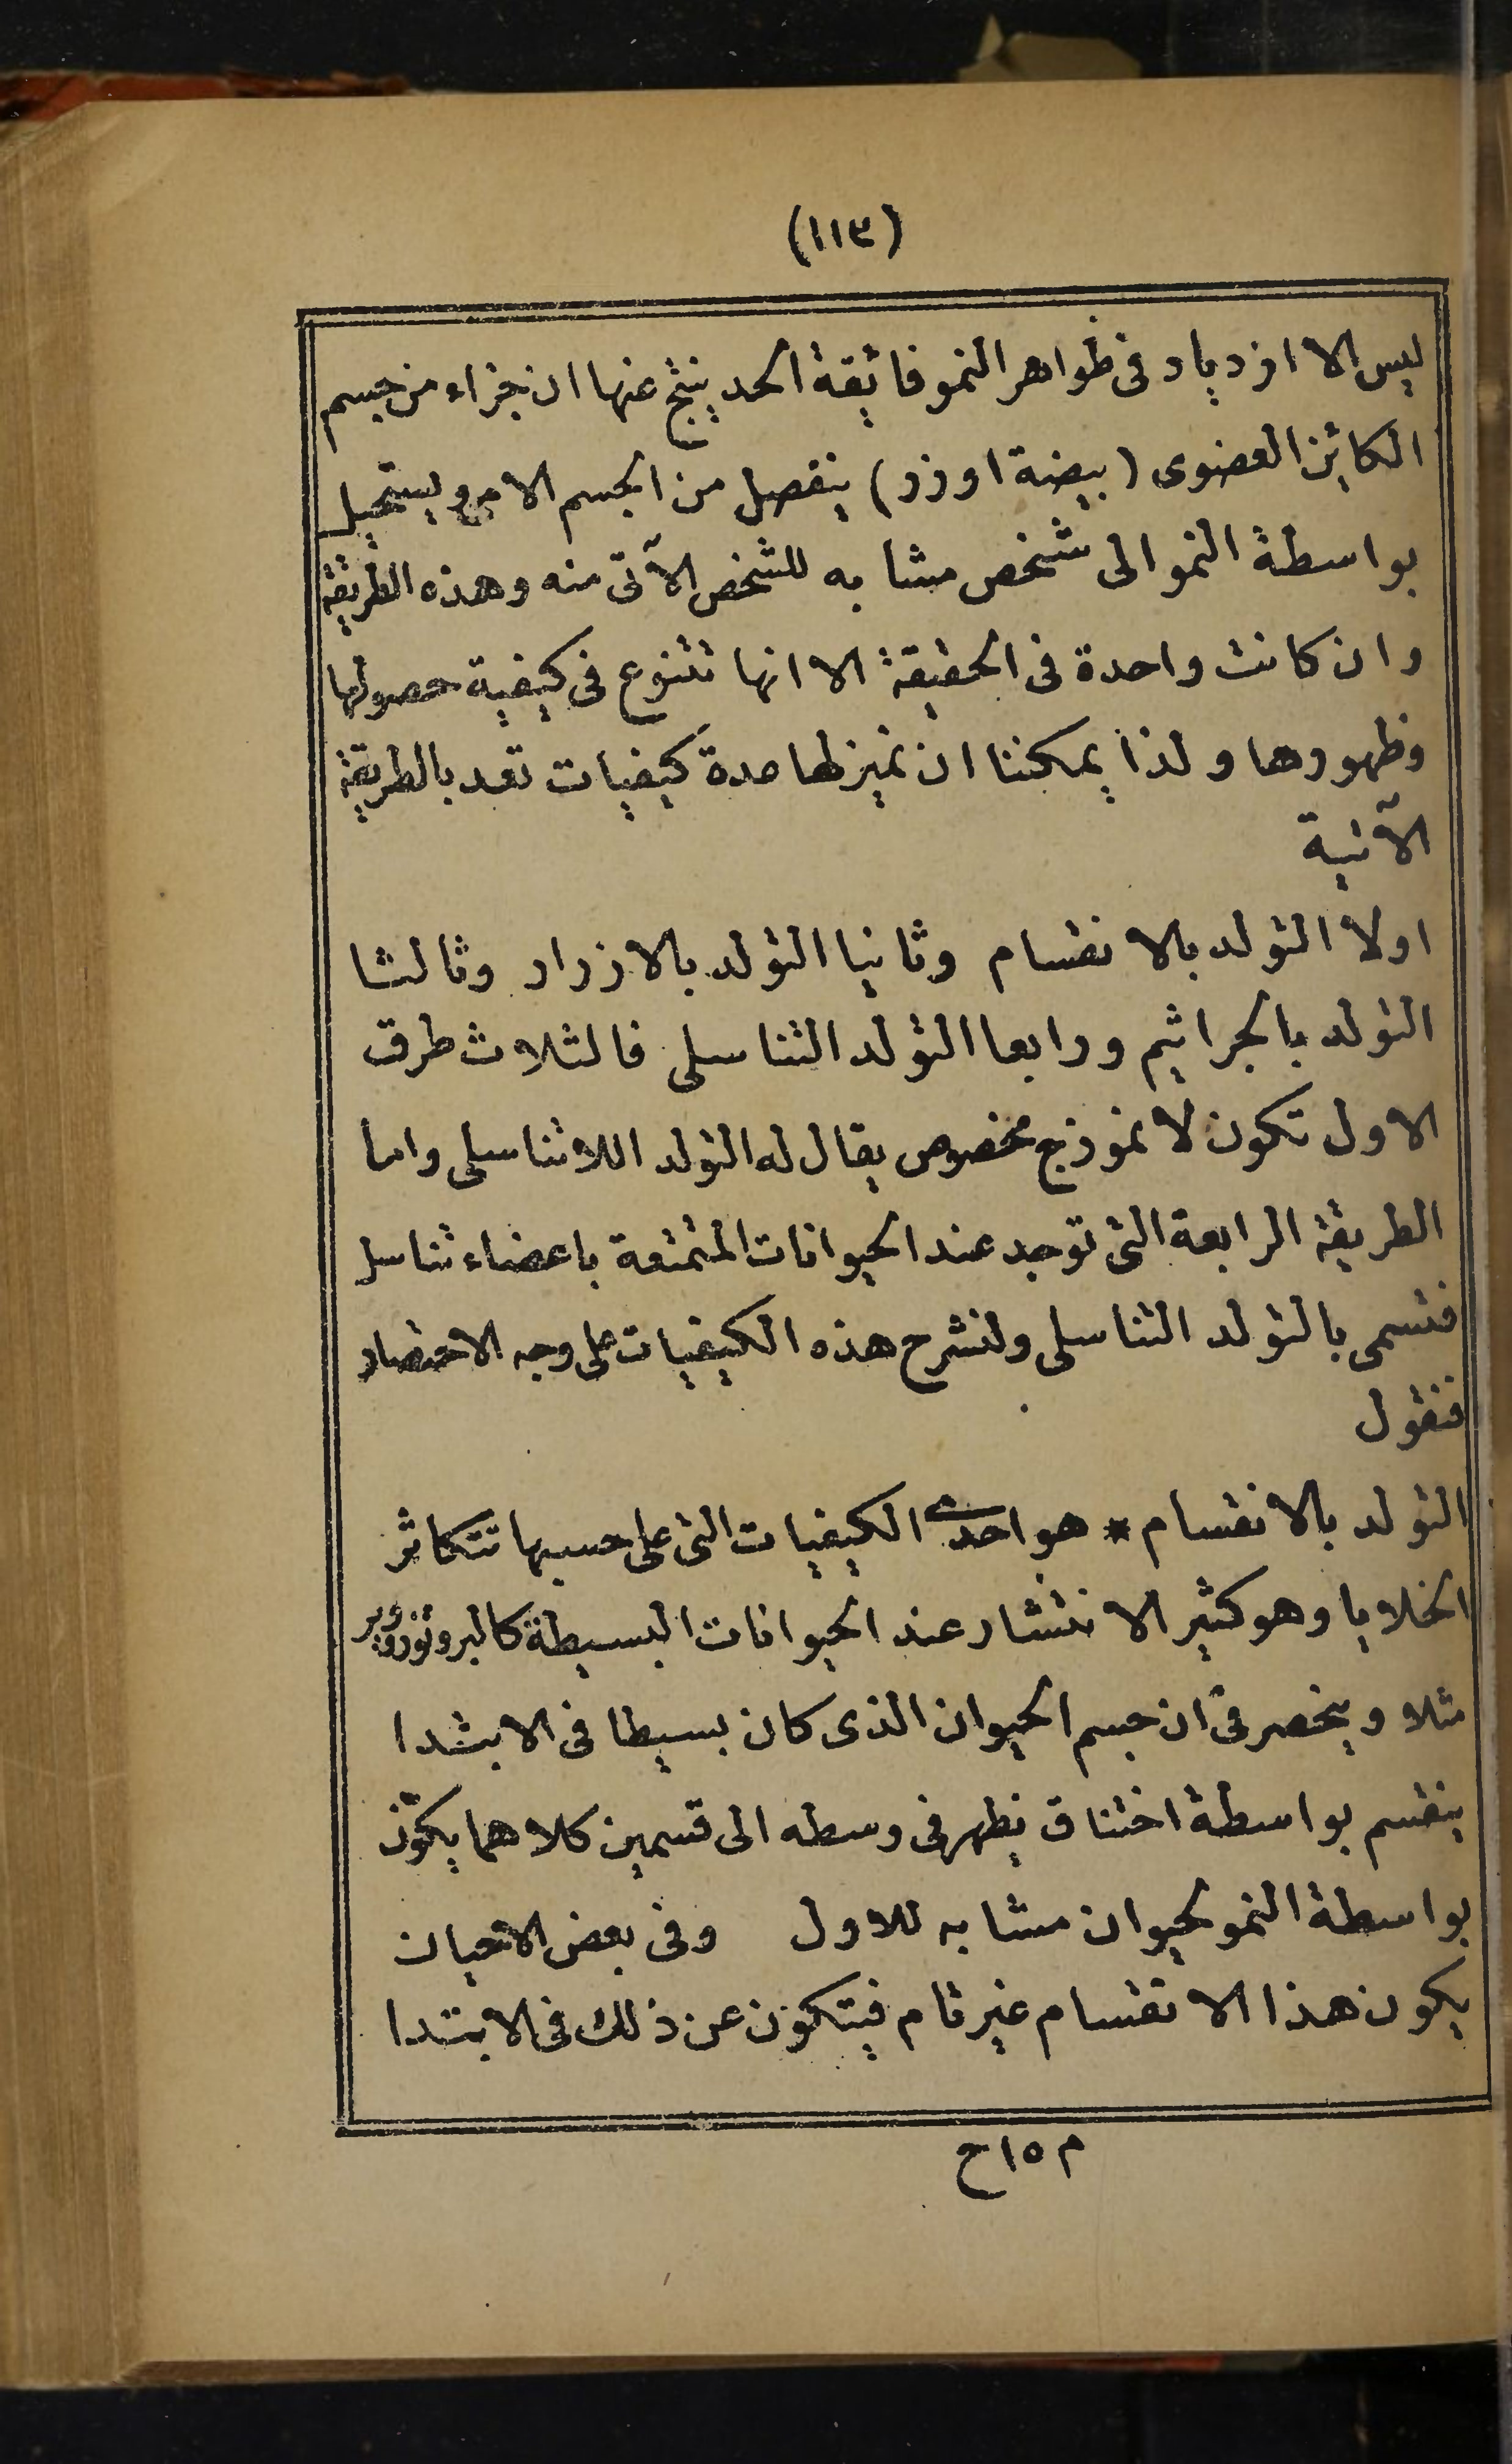 (١١٣)
ليس الا ازدياد فى ظواهر النمو فائقة الحد ينتج عنها ان جزاء من جسم
الكائن العضوى (بيضة اوزر) ينفصل من الجسم الامى ويستحيل
بواسطة النمو الى شخص مشابه للشخص الآتى منه وهذه الطريقة
وان كانت واحدة فى الحقيقة الا انها تتنوع فى كيفية حصولها
وظهورها ولذا يمكننا ان نميز لها عدة كيفيات تعد بالطريقة
الآتية
اولا التولد بالانقسام وثانيا التولد بالازرار وثالثا
التولد بالجراثيم ورابعا التولد التناسلى فالثلاث طرق
الاول تكون لانموذج مخصوص يقال له التولد اللاتناسلى واما
الطريقة الرابعة التى توجد عند الحيوانات المتمتعة باعضاء تناسل
فتسمى بالتولد التناسلى ولنشرح هذه الكيفيات على وجه الاختصار
فنقول
التولد بالانقسام * هو احدى الكيفيات التى على حسبها تتكاثر
الخلايا وهو كثير الانتشار عند الحيوانات البسيطة كالبروتوزوير
مثلا وينحصر فى ان جسم الحيوان الذى كان بسيطا فى الابتدا
ينقسم بواسطة اختناق يظهر فى وسطه الى قسمين كلاهما يكوّن
بواسطة النمو لحيوان مشابه للاول وفى بعض الاحيان
يكون هذا الانقسام غير تام فيتكون عن ذلك فى الابتدا
م ١٥ ح